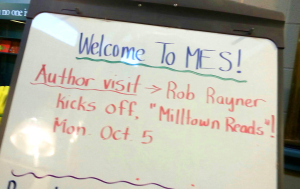 no one i
Welcome To MES!
Author visit → Rob Rayner
kicks off, "Milltown Reads"!
Mon. Oct 5